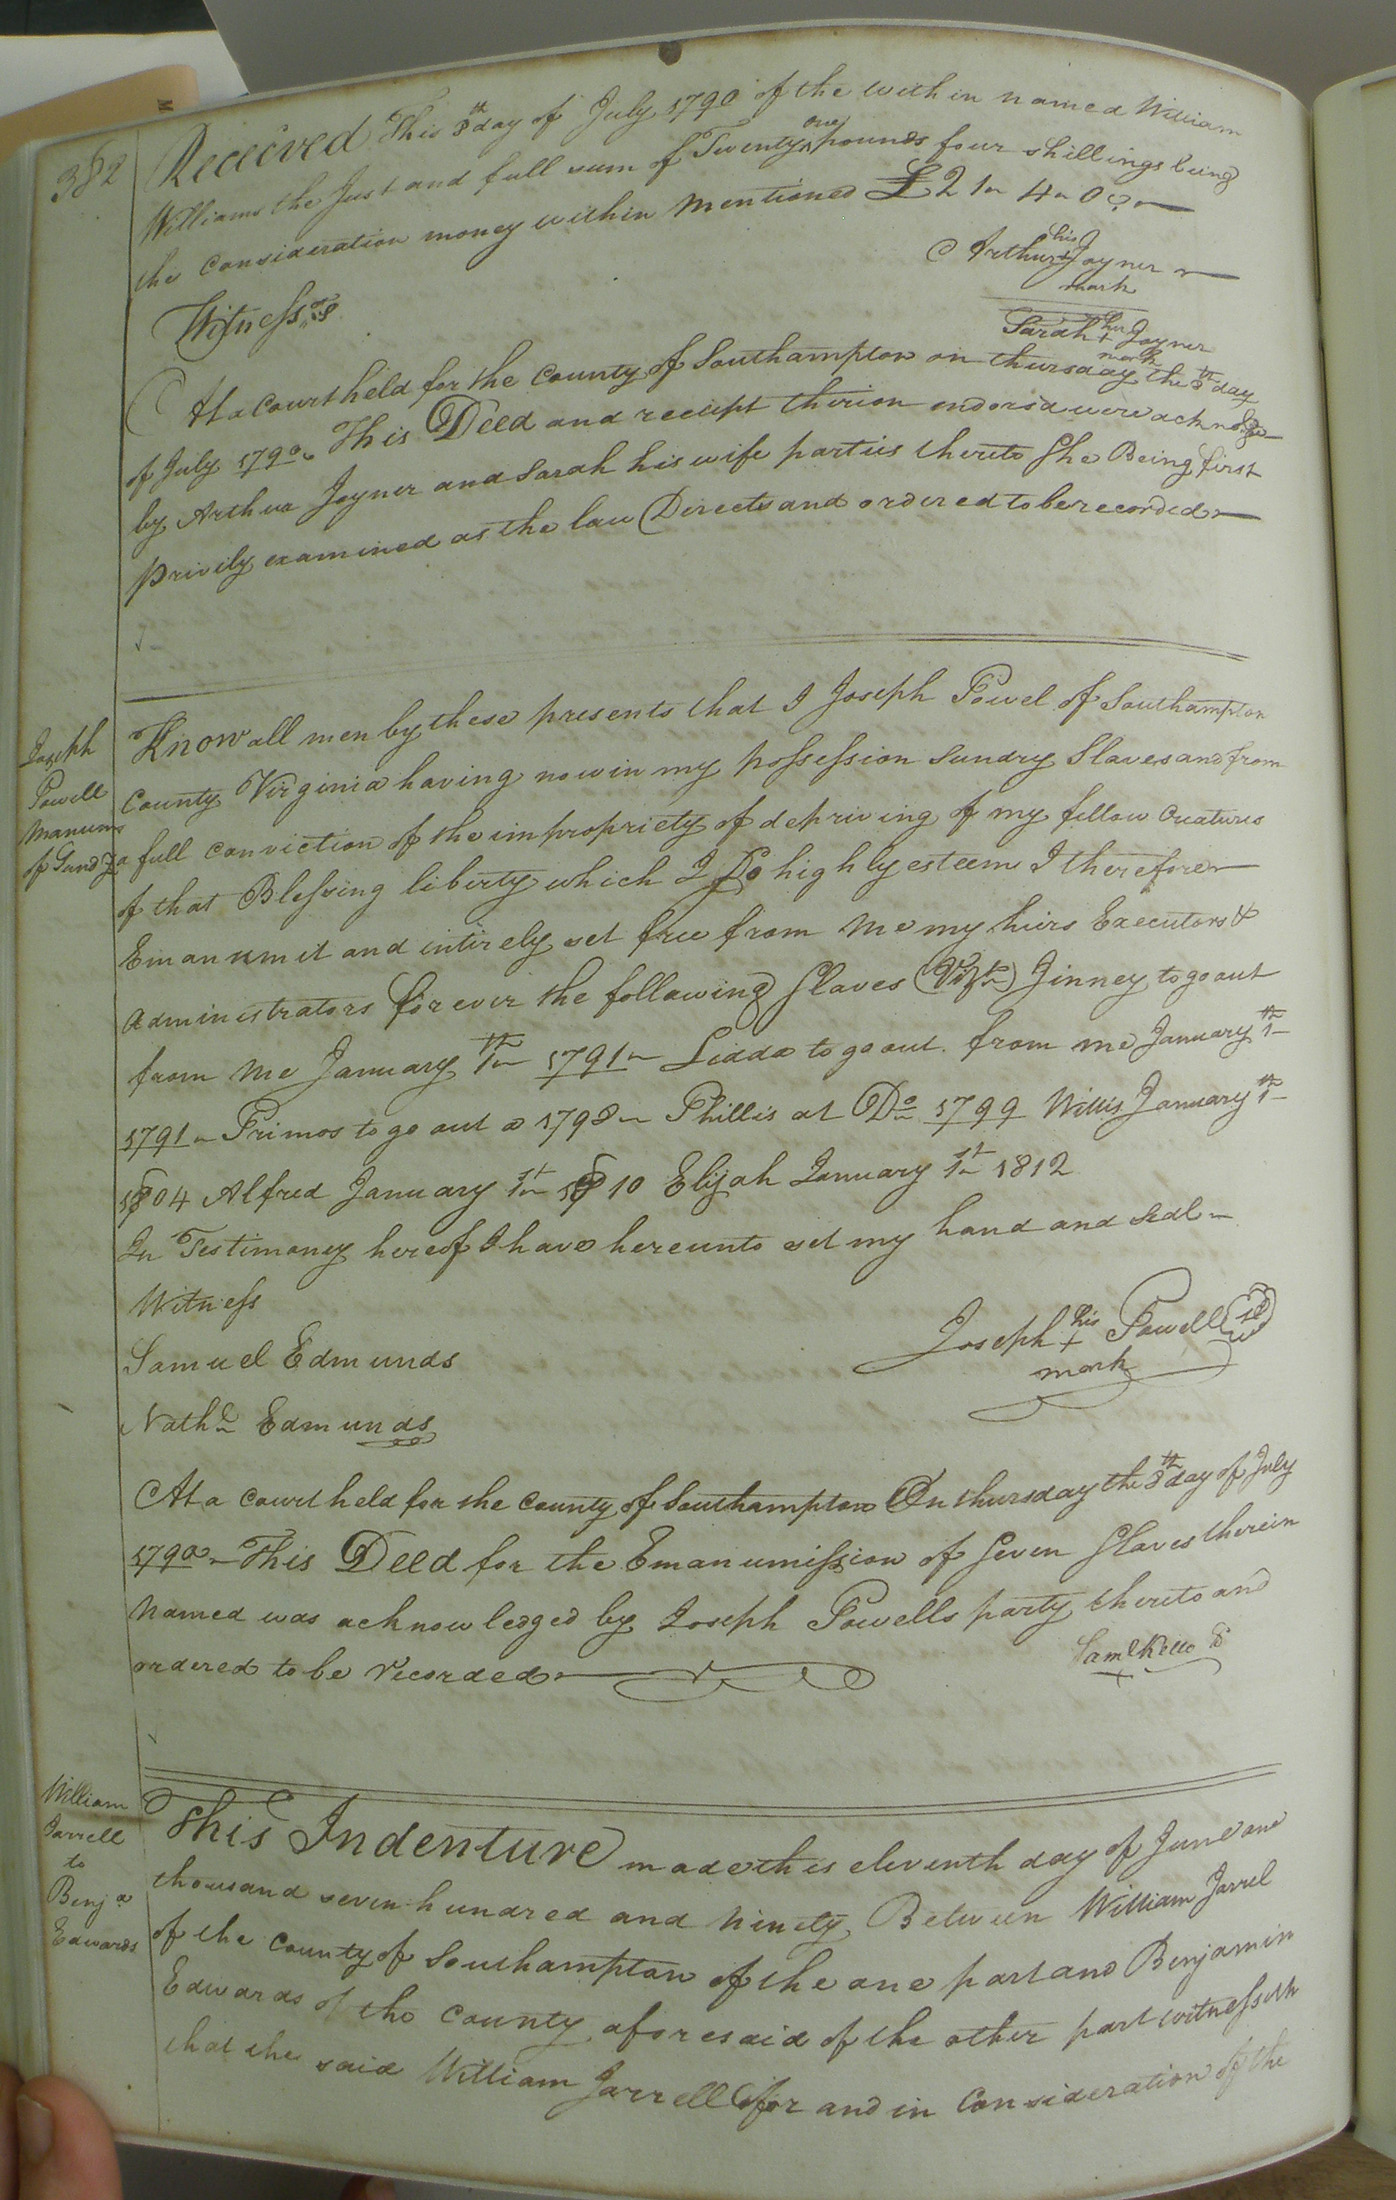 382
Received This 8th day of July 1790 of the within named William
Williams the Just and full sum of Twenty one pounds four shillings being
the consideration money within mentioned £21 " 4 " 0
his
Arthur + Joyner
mark
Witness
her
Sarah + Joyner
mark
At a Court held for the County of Southampton on thursday the 8th day
of July 1790 This Deed and receipt thereon endorsd were acknolge
by Arthur Joyner and Sarah his wife parties thereto She Being first
privily examined as the law Directs and ordered to be recorded
Joseph
Powell
Manums
of Sund
Know all men by these presents that I Joseph Powel of Southampton
County Virginia having now in my possession Sundry Slaves and from
a full conviction of the impropriety of depriving of my fellow Creatures
of that Blessing liberty which I Do highly esteem I therefore
Emanumit and intirely set free from me my heirs Executors &
administrators for ever the following Slaves (Vizt) Jinney to go out
from me January 1th 1791 Lidda to go out from me January 1th
1791 Primos to go out 1798 Phillis at Do 1799 Willis January 1th
1804 Alfred January 1st 1810 Elijah January 1st 1812
In Testimony hereof I have hereunto set my hand and seal
Witness
Samuel Edmunds
his
Joseph + Powell
mark
Nathl Edmunds
At a court held for the County of Southampton On thursday the 8th day of July
1790 This Deed for the Emanumission of Seven Slaves therein
Named was acknowledged by Joseph Powells party thereto and
ordered to be recorded
Saml Kello
William
Jarrell
to
Benja
Edwards
This Indenture made this eleventh day of June one
thousand seven hundred and Ninety Between William Jarrel
of the County of Southampton of the one part and Benjamin
Edwards of the County aforesaid of the other part Witnesseth
that the said William Jarrell for and in Consideration of the